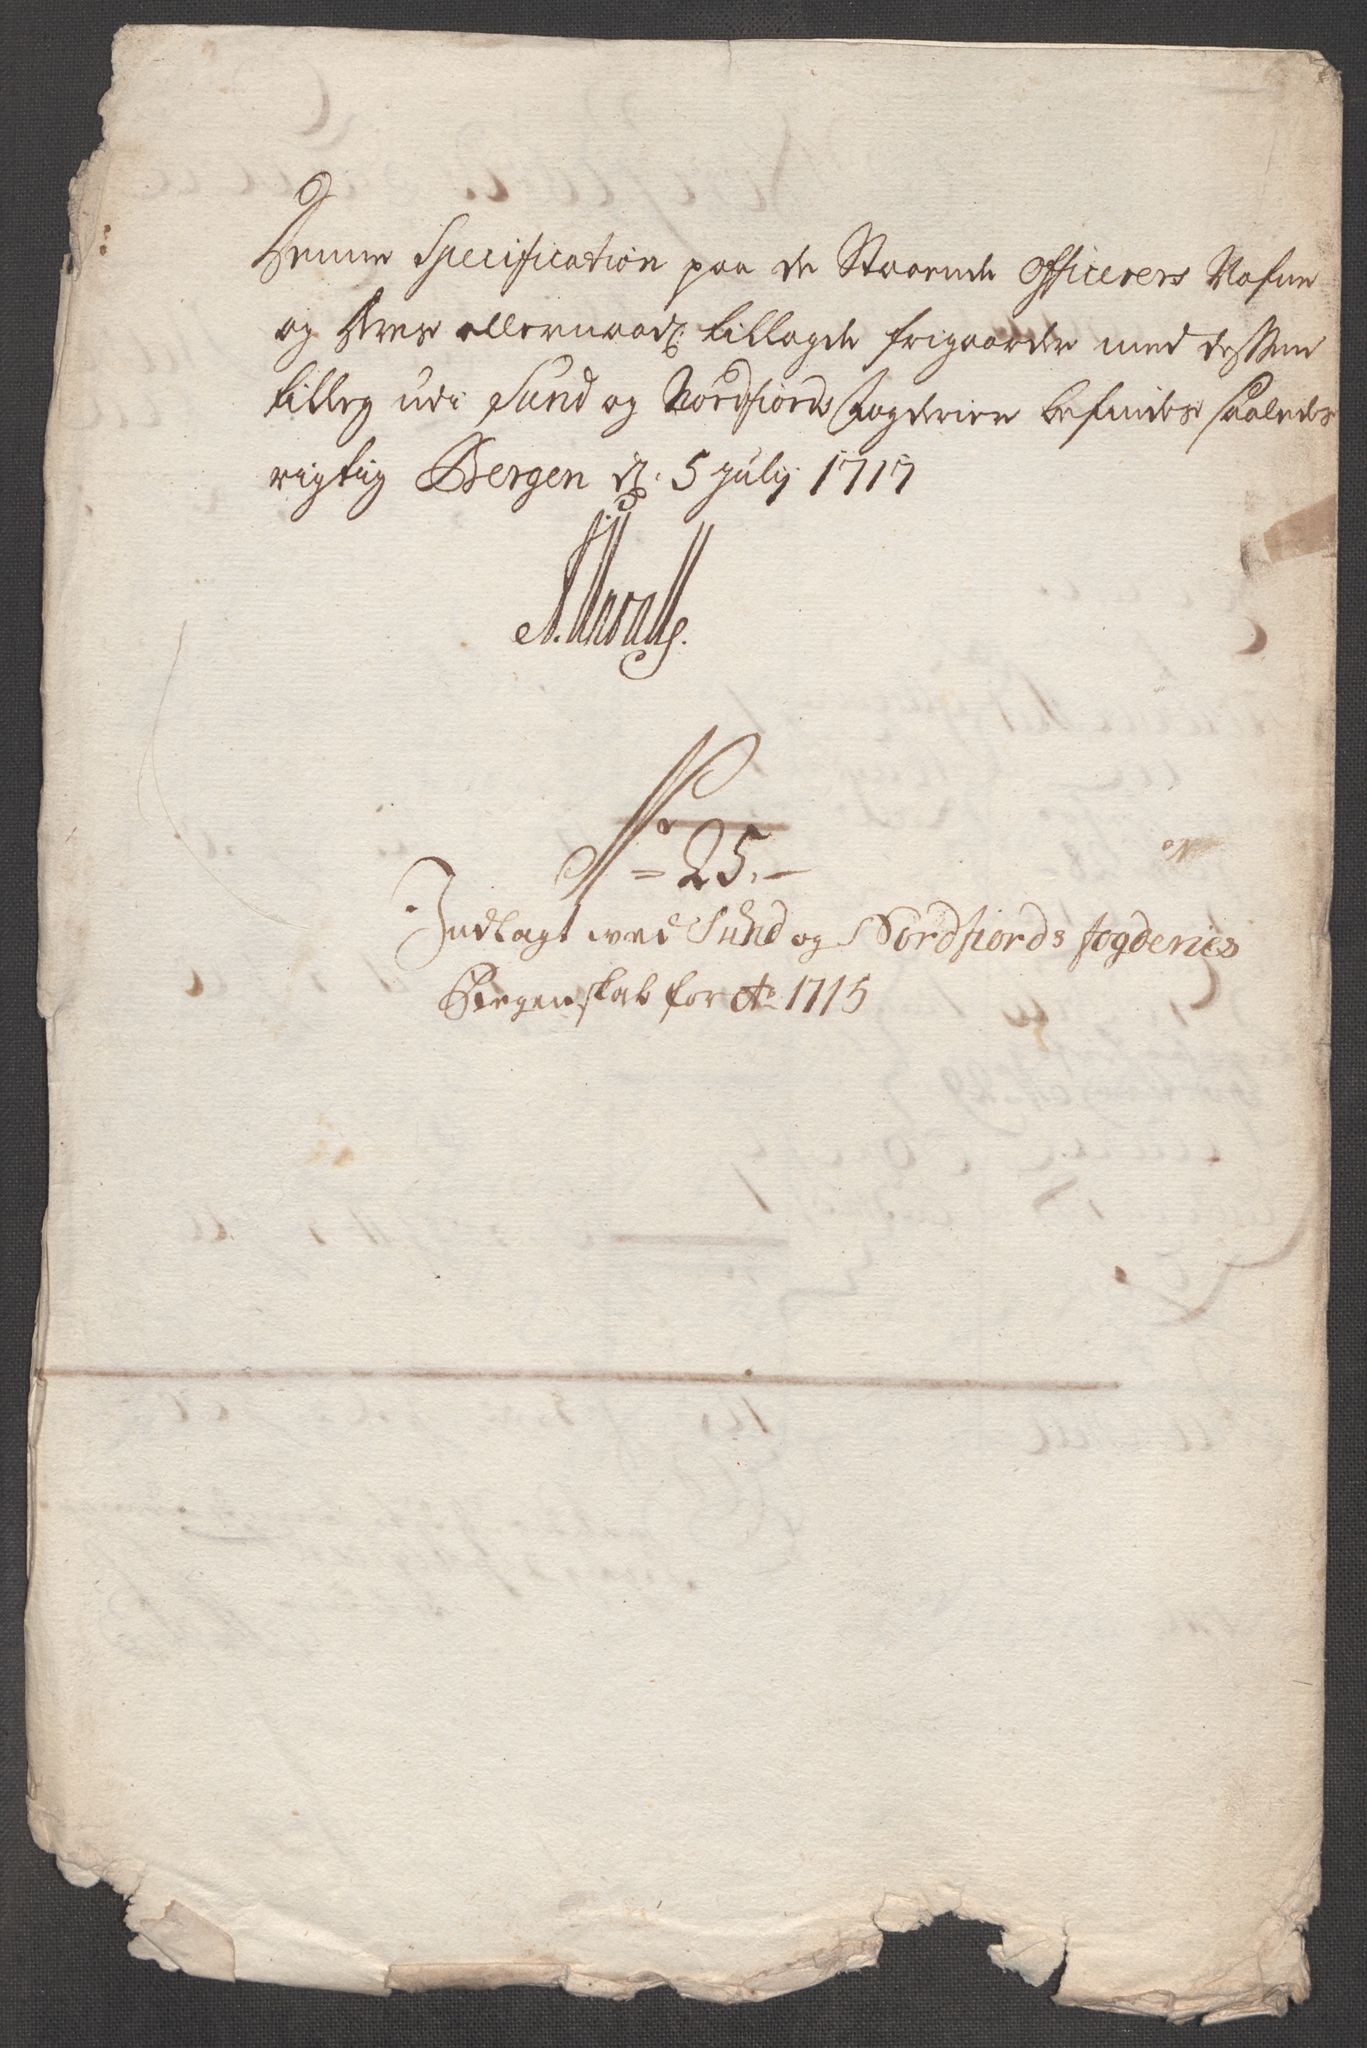 Denne Specification paa de Staaende Officerers Nafne
og deres allernaadl: tillagde frigaarder med dessen
tilleg udi Sund og Nordfiords fogderier befindes saaledes
rigtig Bergen d: 5 july 1717
No 25.
Indlagt ved Sund og Nordfiords fogderies
Regenskab for Ao 1715